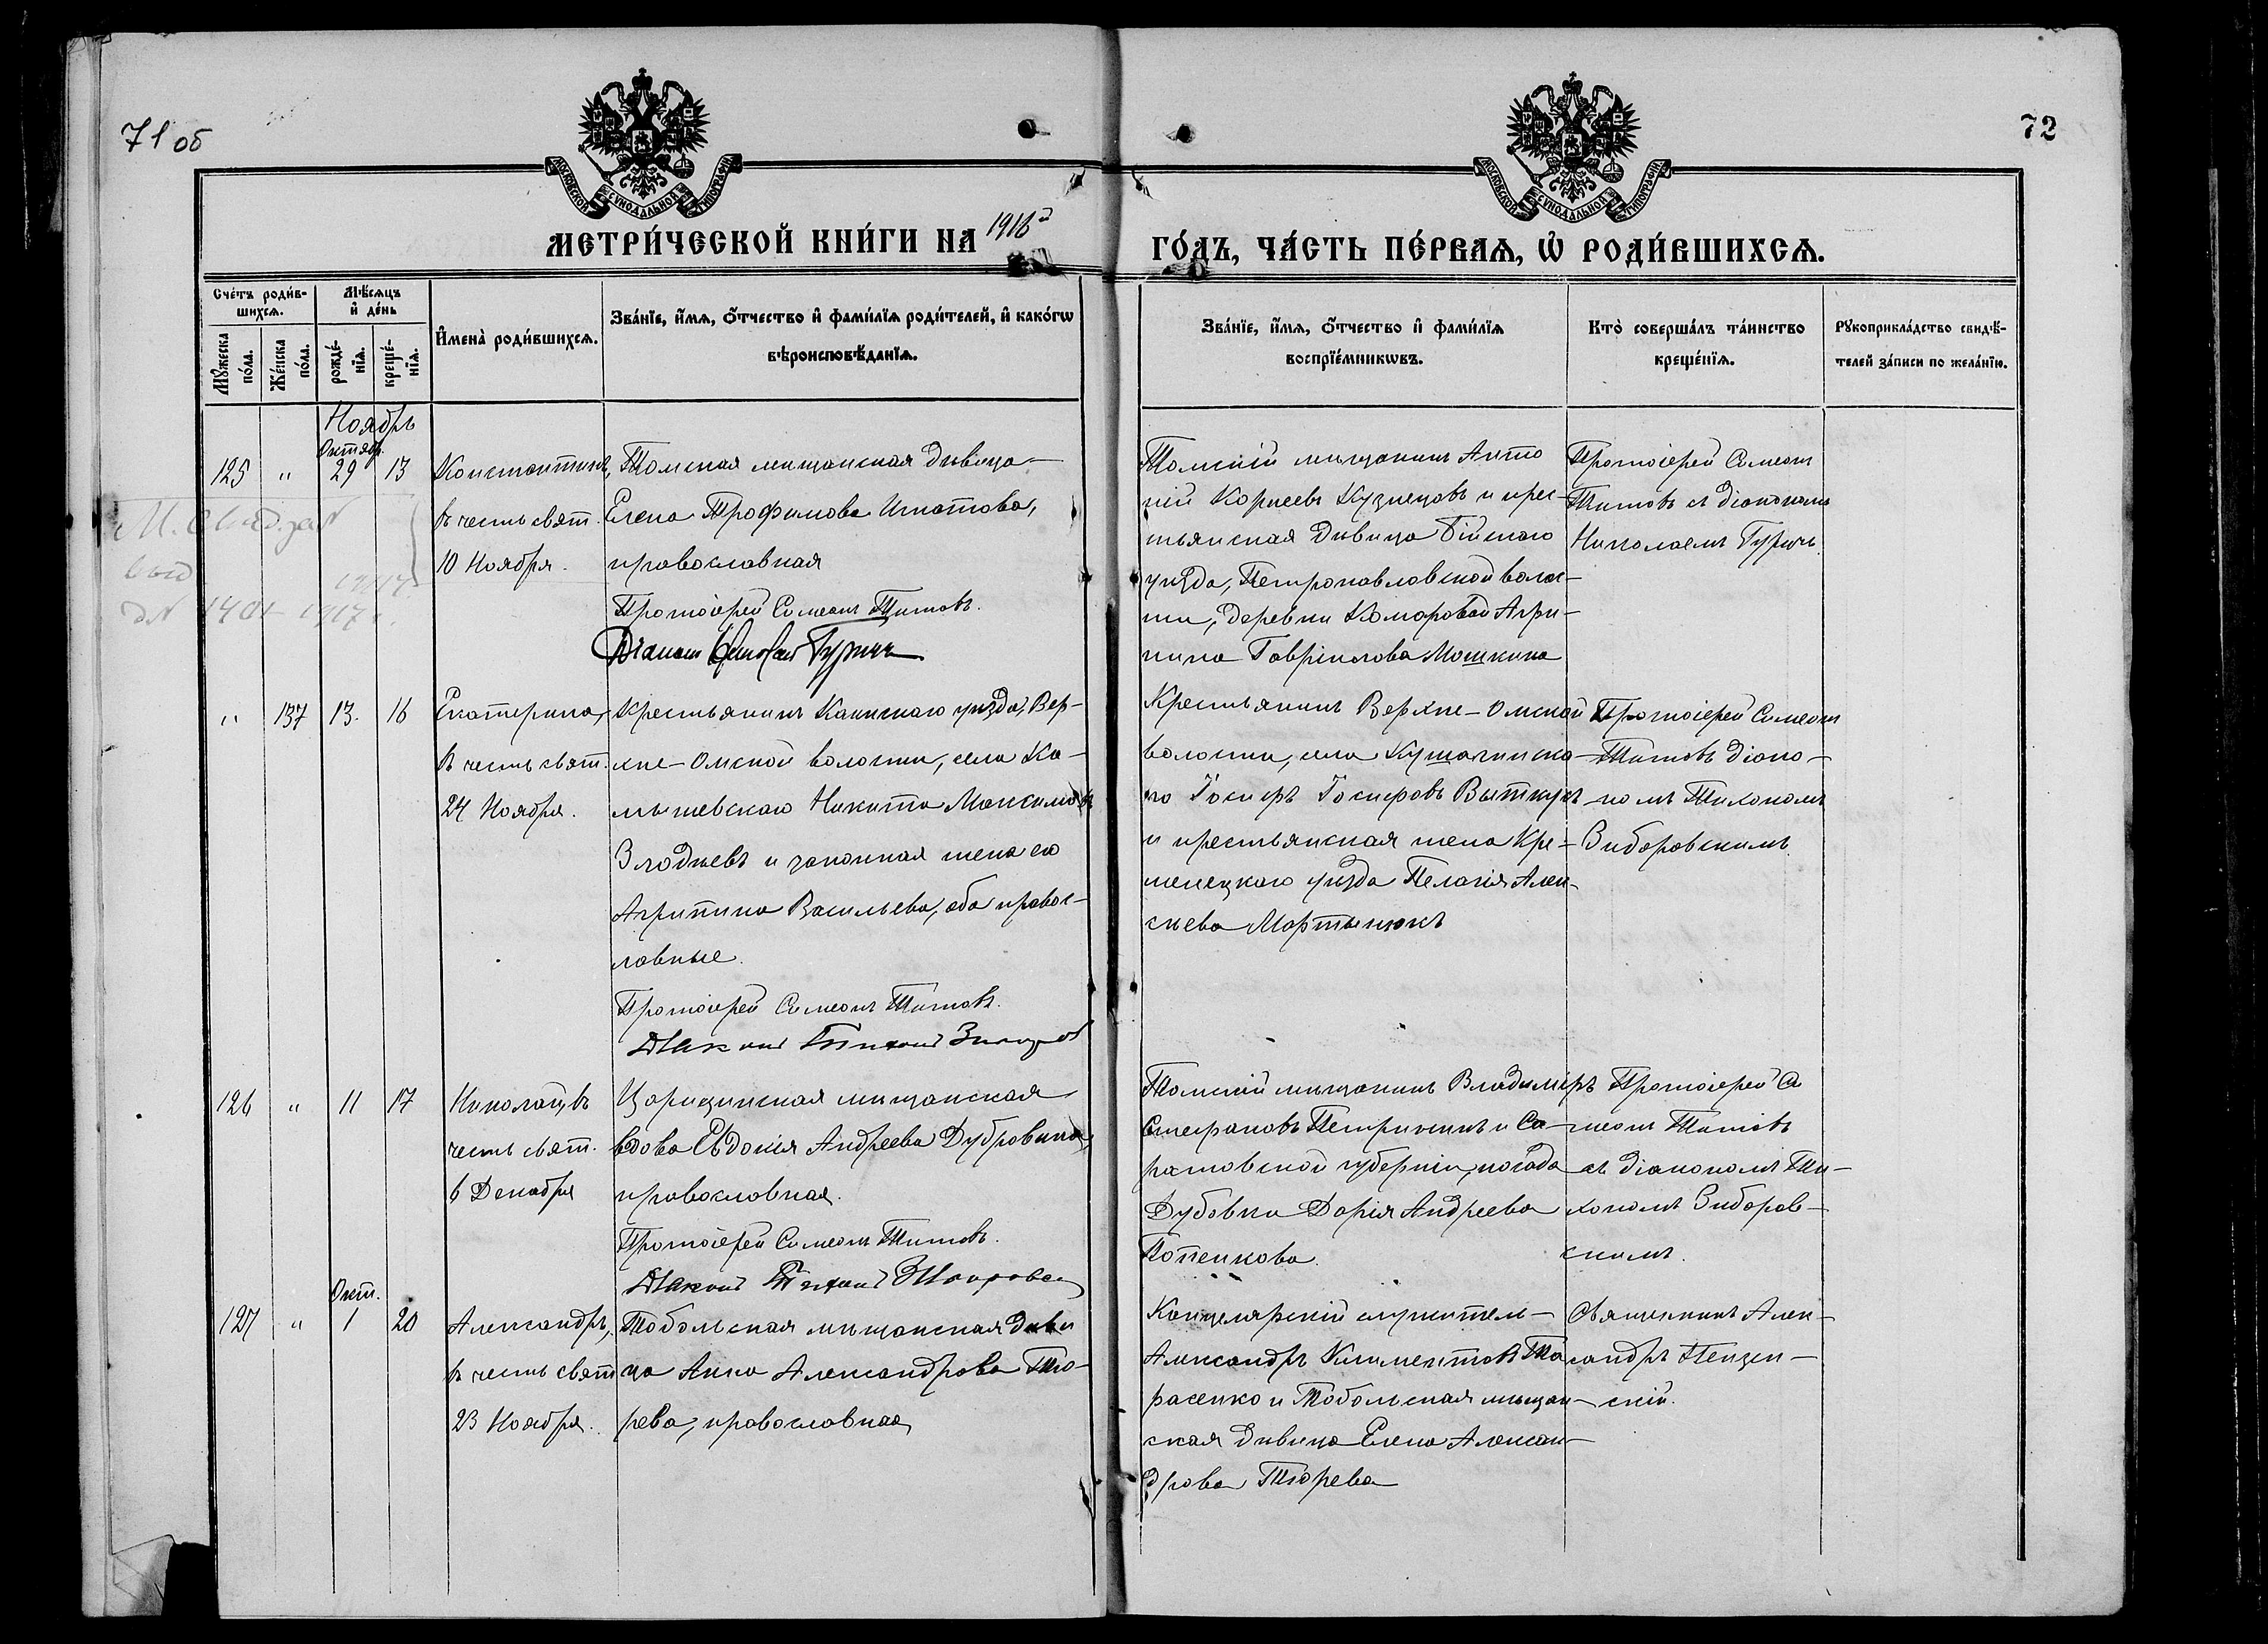 71 об
72
МОСКОВСКОЙ СѴНОДАЛЬНОЙ ТИПОГРАФІИ
МОСКОВСКОЙ СѴНОДАЛЬНОЙ ТИПОГРАФІИ
МЕТРИ́ЧЕСКОЙ КНИ́ГИ НА 1916
ГО́ДЪ, ЧА́СТЬ ПЕ́РВАѦ, Ѡ РОДИ́ВШИХСѦ.
Сче́тъ роди́в-
шихсѧ.
Мꙋ́жеска по́ла.
Же́нска по́ла.
Мѣ́сѧцъ
и҆ де́нь
рожде́-
нїѧ.
креще́-
нїѧ.
И҆мена̀ роди́вшихсѧ.
Зва́нїе, и҆́мѧ, ѻ҆́тчество и҆ фами́лїѧ роди́телей, и҆ како́гѡ
вѣроисповѣ́данїѧ.
Зва́нїе, и҆́мѧ, ѻ҆́тчество и҆ фами́лїѧ
воспрїе́мникѡвъ.
Кто̀ соверша́лъ та́инство
креще́нїѧ.
Рꙋкоприкла́дство свидѣ́-
телей за́писи по жела́нїю.
Ноябрь
Октяб.
125 " 29 13
Константинъ,
въ честь свят.
10 Ноября.
Томская мѣщанская дѣвица
Елена Трофимова Игнатова,
православная
Протоіерей Симеонъ Титовъ.
Діаконъ Николай Гуричъ
Томскій мѣщанинъ Анто
ній Корнеевъ Кузнецовъ и крес-
тьянская дѣвица Бійскаго
уѣзда, Петропавловской волос-
ти, деревни Комаровой Агри-
пина Гавріилова Мошкина
Протоіерей Симеонъ
Титовъ съ діакономъ
Николаемъ Гуричъ.
1917 г.
" 137 13. 16
Екатерина,
въ честь свят.
24 Ноября.
Крестьянинъ Каинскаго уѣзда, Вер-
хне-Омской волости, села Ка-
мышевскаго Никита Максимовъ
Злоднѣвъ и законная жена его
Агрипина Васильева, оба правос-
лавные.
Протоіерей Симеонъ Титовъ.
Діаконъ Тихонъ
Крестьянинъ Верхне-Омской
волости, села Кушагинска-
го Іосифъ Іосифовъ
и крестьянская жена Кре-
менецкаго уѣзда Пелагія Алек-
сѣева Мартынюкъ
Протоіерей Симеонъ
Титовъ діако-
номъ Тихономъ
Зиборовскимъ.
126 " 11 17
Николай, въ
честь свят.
6 Декабря
Царицинская мѣщанская
вдова Евдокія Андреева Дубровина,
православная.
Протоіерей Симеонъ Титовъ.
Діаконъ Тихонъ
Томскій мѣщанинъ Владиміръ
Стефановъ Петрункинъ и Са-
ратовской губерніи, посада
Дубовки Дарія Андреева
Попенкова.
Протоіерей Си
меонъ Титовъ
съ діакономъ Ти-
хономъ Зиборов-
скимъ.
Окт.
127 " 1 20
Александръ,
въ честь свят
23 Ноября.
Тобольская мѣщанская дѣви
ца Анна Александрова Тю-
рева, православная
Канцелярскій служитель
Александръ Климентовъ Та
расенко и Тобольская мѣщан-
ская дѣвица Елена Алексан-
дрова Тюрева
Священникъ Алек-
сандръ Пензен-
скій.